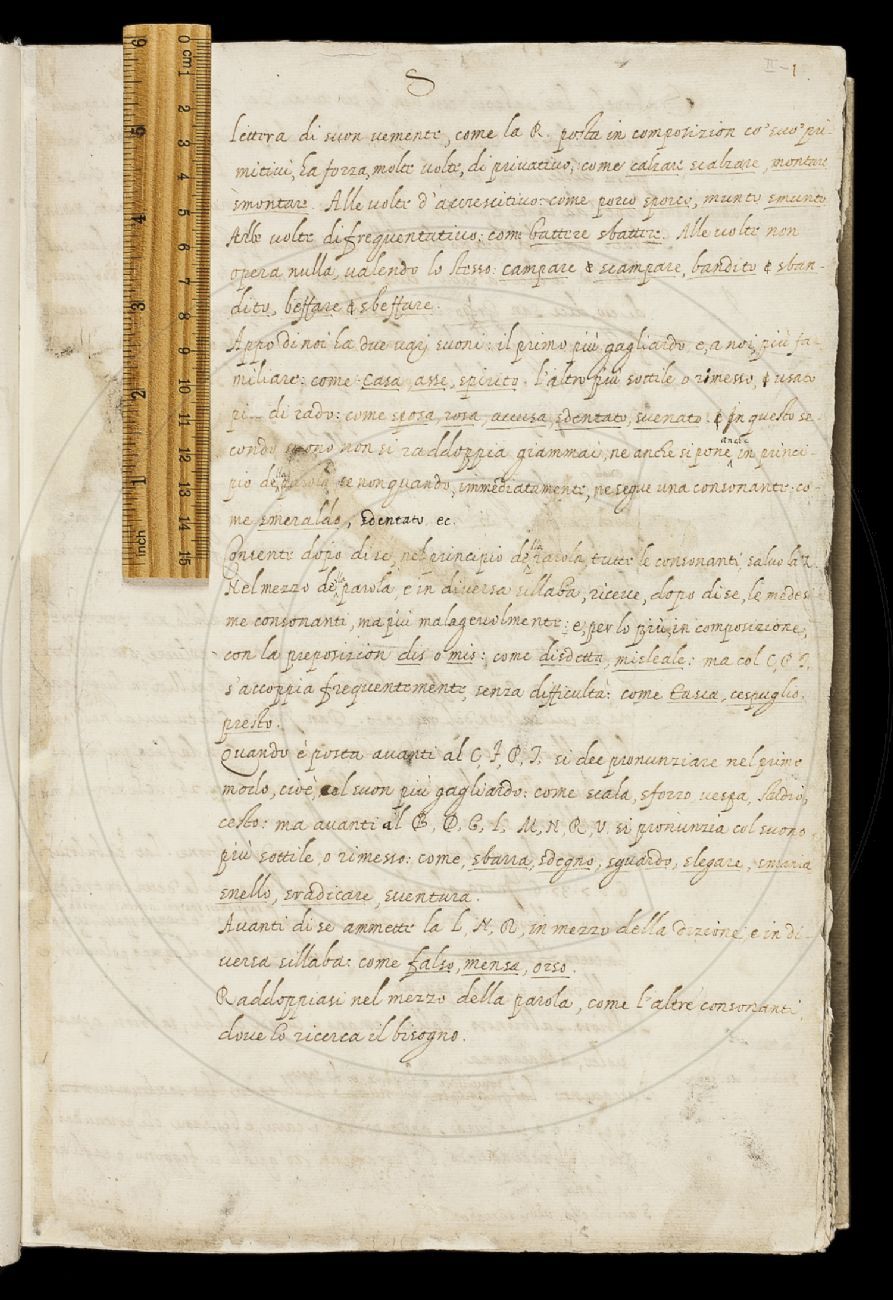 S
II - 1
Lettera di suon vemente, come la R. posta in composizion co' suo' pri-
mitivi, ha forza, molte volte, di privativo, come calzare scalzare, montare
smontare. Alle volte d'accrescitivo: come porco sporco, munto smunto
Alle volte di frequentativo: come battere sbattere. Alle volte non
opera nulla, valendo lo stesso: campare e scampare, bandito e sban-
dito, beffare e sbeffare.
Appo di noi ha due varj suoni: il primo più gagliardo, e, a noi, più fa-
miliare: come Casa, asse, spirito. l'altro più sottile, o rimesso, e usato
di rado: come sposa, rosa, accusa, sdentato, svenato. e in questo se-
condo suono non si raddoppia giammai, ne anche si pone anche in princi-
pio della parola se non quando, immediatamente, ne segue una consonante. co-
me smeraldo, sdentato ec.
Consente dopo di se, nel principio della parola, tutte le consonanti, salvo la Z.
Nel mezzo della parola, e in diversa sillaba, riceve, dopo di se, le medesi-
me consonanti, ma più malagevolmente: e, per lo più, in composizione,
con la preposizion dis o mis: come disdetta, misleale: ma col C, P, T,
s'accoppia frequentemente, senza difficultà: come Casca, cespuglio,
presto.
Quando è posta avanti al C, F, P, T. si dee pronunziare nel primo
modo, cioè, col suon più gagliardo: come scala, sforzo, vespa,
cesto: ma avanti al B, D, G, L, M, N, R, V. si pronunzia col suono
più sottile, o rimesso: come, sbarra, sdegno, sguardo, slegare, smania
snello, sradicare, sventura.
Avanti di se ammette la L, N, R, in mezzo della dizione, e in di-
versa sillaba: come falso, mensa, orso.
Raddoppiasi nel mezzo della parola, come l'altre consonanti,
dove lo ricerca il bisogno.
0 cm 1 2 3 4 5 6 7 8 9 10 11 12 13 14 15
6 5 4 3 2 1 inch